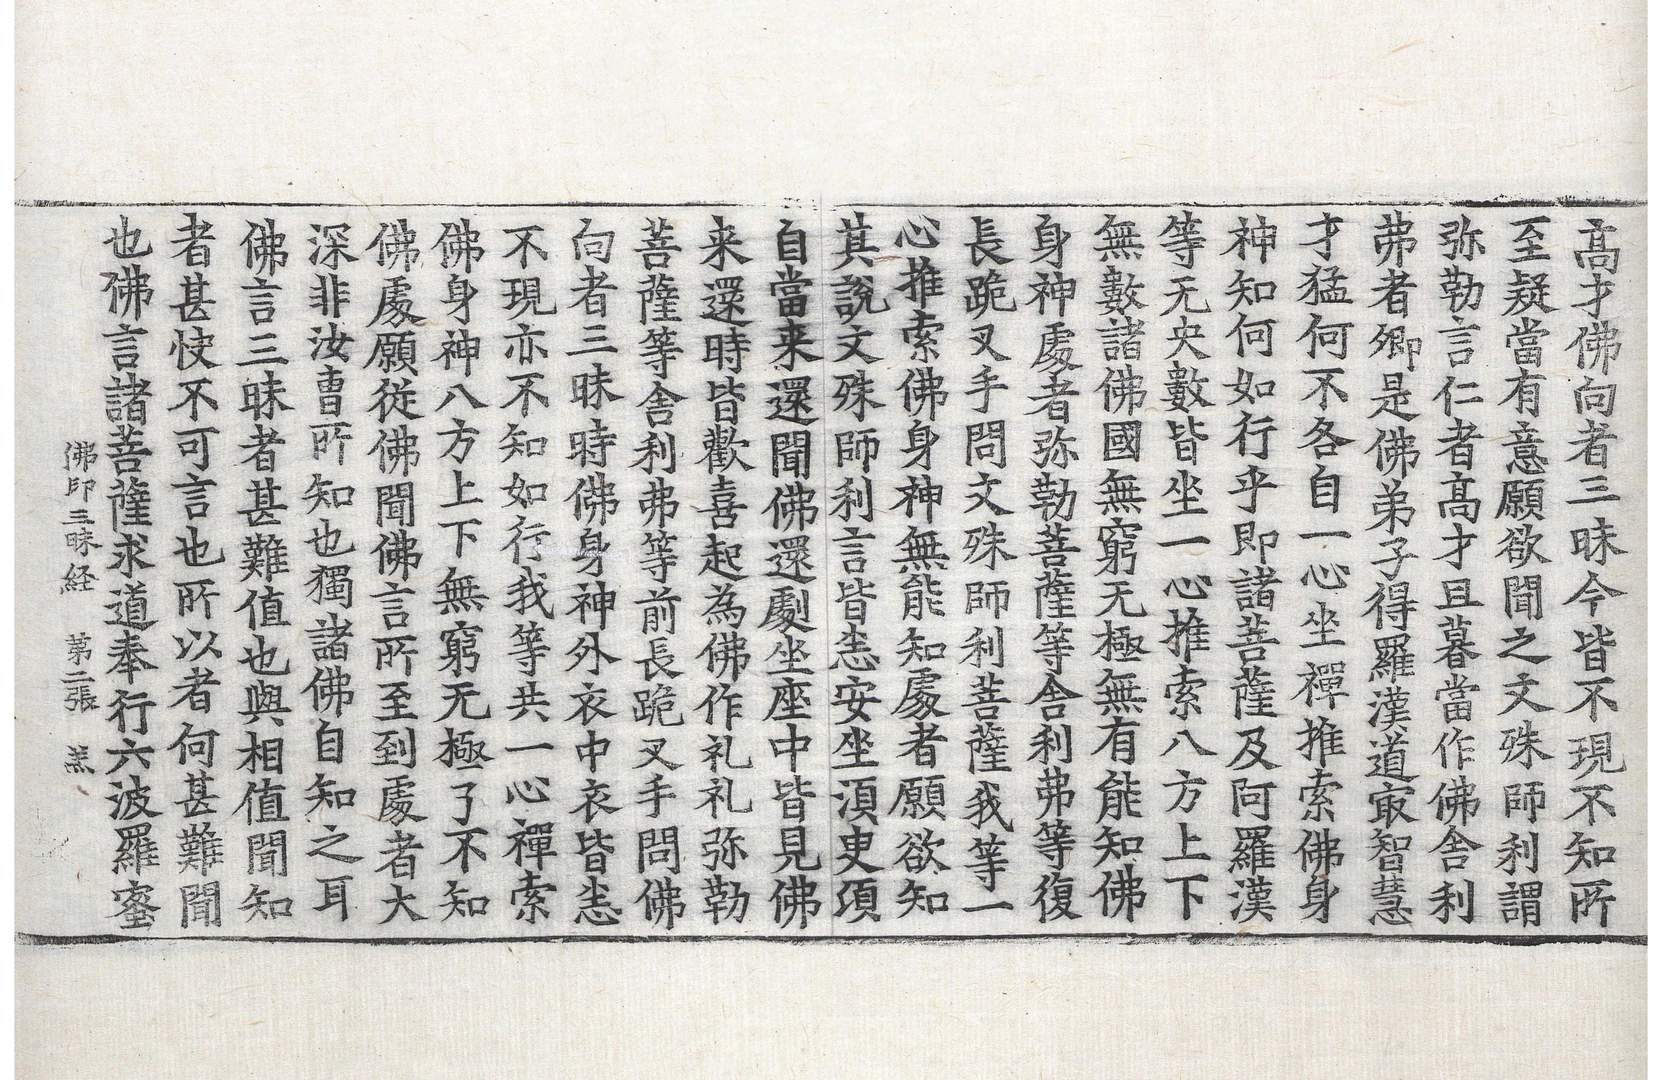 髙才佛向者三昧今皆不現不知所
至疑當有意願欲聞之文殊師利謂
弥勒言仁者髙才且暮當作佛舎利
弗者卿是佛弟子得羅漢道㝡智慧
才猛何不各自一心坐禪推索佛身
神知何如行乎即諸菩薩及阿羅漢
等无央數皆坐一心推索八方上下
無數諸佛國無窮无極無有能知佛
身神處者弥勒菩薩等舎利弗等復
長跪叉手問文殊師利菩薩我等一
心推索佛身神無能知處者願欲知
其說文殊師利言皆恙安坐湏臾湏
自當来還聞佛還劇坐座中皆見佛
来還時皆歡喜起為佛作礼礼弥勒
菩薩等舎利弗等前長跪叉手問佛
向者三昧時佛身神外衣中衣皆恙
不現亦不知如行我等共一心禪索
佛身神八方上下無窮无極了不知
佛處願從佛聞佛言所至到處者大
深非汝曺所知也獨諸佛自知之耳
佛言三昧者甚難值也與相值聞知
者甚快不可言也所以者何甚難聞
也佛言諸菩薩求道奉行六波羅蜜
佛印三昧経 第二張 羔